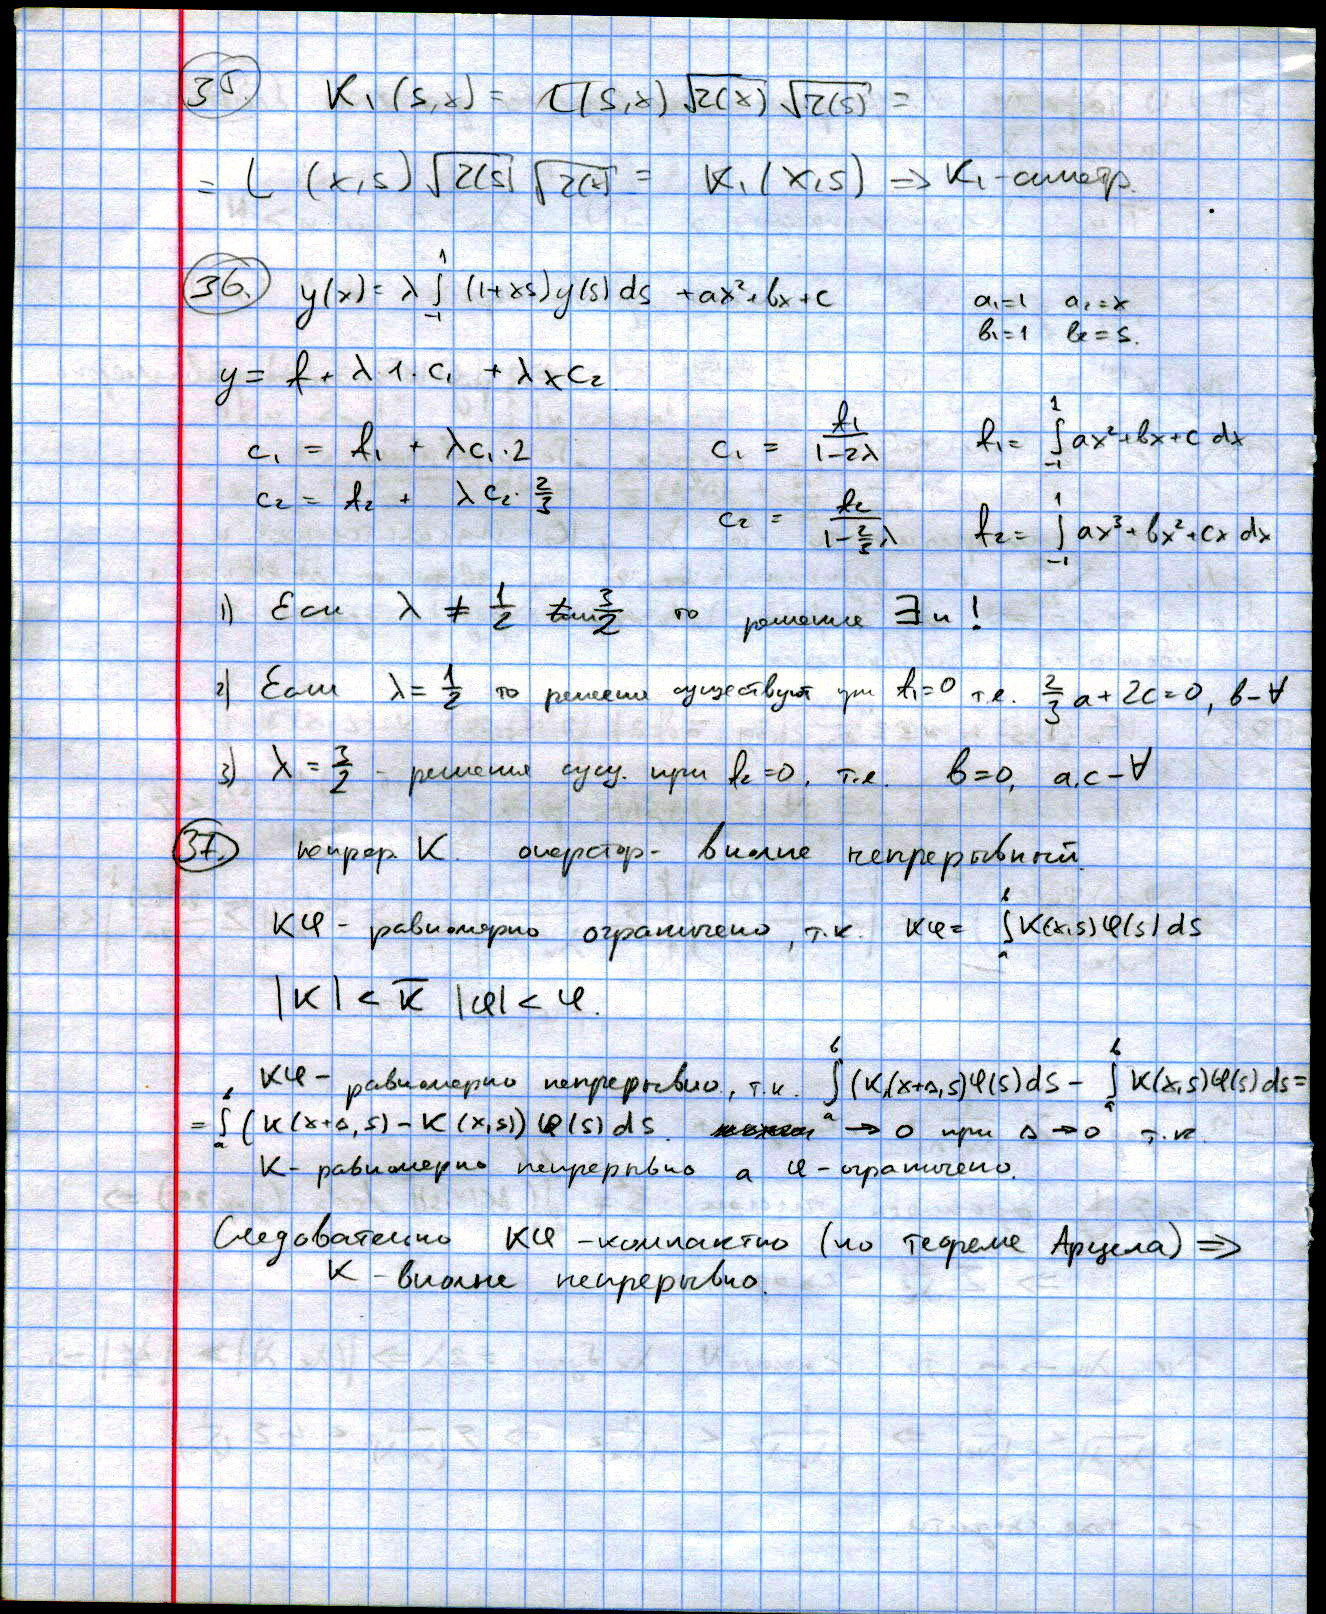 35. K₁(s,x) = L(s,x) √r(x) √r(s) =
= L (x,s) √r(s) √r(x) = K₁(x,s) ⇒ K₁-симетр.
36. y(x) = λ ∫₋₁¹ (1+xs) y(s) ds + ax² + bx + c a₁=1 a₂=x
b₁=1 b₂=s.
y = f + λ 1·c₁ + λ x c₂
c₁ = f₁ + λc₁·2 c₁ = f₁/(1-2λ) f₁ = ∫₋₁¹ ax²+bx+c dx
c₂ = f₂ + λc₂·2/3 c₂ = f₂/(1-2/3 λ) f₂ = ∫₋₁¹ ax³+bx²+cx dx
1) Если λ ≠ 1/2 3/2 то решение ∃ и !
2) Если λ = 1/2 то решения существуют при f₁=0 т.е. 2/3 a + 2c = 0, b-∀
3) λ = 3/2 - решения сущ. при f₂=0, т.е. b=0, a,c-∀
37. непрер. K. оператор - вполне непрерывный
Kφ - равномерно ограничено, т.к. Kφ = ∫ₐᵇ K(x,s)φ(s)ds
|K| < K̅ |φ| < φ.
Kφ - равномерно непрерывно, т.к. ∫ₐᵇ (K(x+Δ,s)φ(s)ds - ∫ₐᵇ K(x,s)φ(s)ds =
= ∫ₐᵇ (K(x+Δ,s) - K(x,s)) φ(s) ds. → 0 при Δ → 0 т.к.
K - равномерно непрерывно а φ - ограничено.
Следовательно Kφ - компактно (по теореме Арцела) ⇒
K - вполне непрерывно.